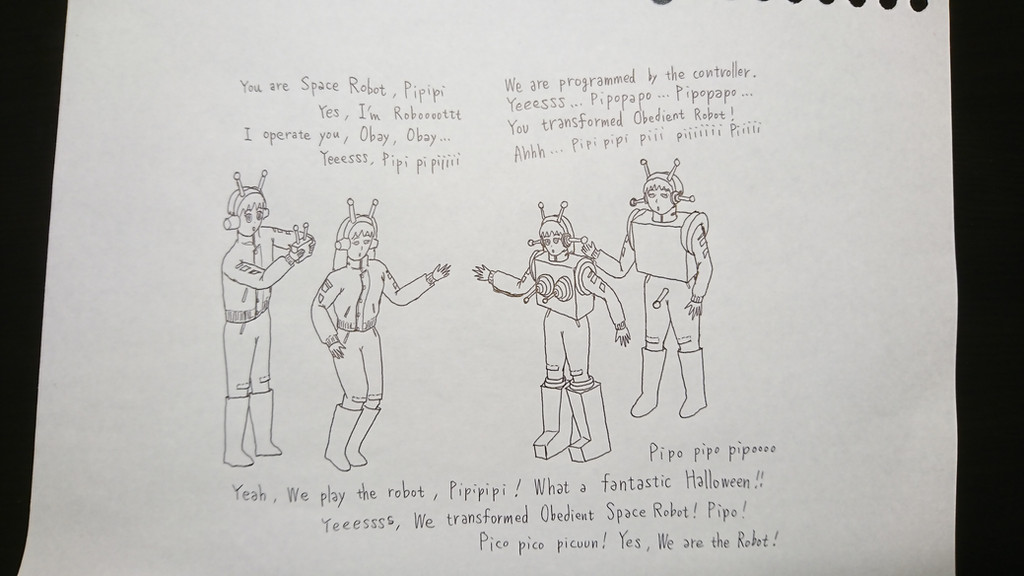 You are Space Robot, Pipipi
Yes, I'm Roboooottt
I operate you, Obay, Obay...
Yeeesss, Pipi pipiiiii
We are programmed by the controller.
Yeeesss... Pipopapo... Pipopapo...
You transformed Obedient Robot!
Ahhh... Pipi pipi piii piiiiiii Piiiii
Pipo pipo pipoooo
Yeah, We play the robot, Pipipipi! What a fantastic Halloween!!
Yeeessss, We transformed Obedient Space Robot! Pipo!
Pico pico picuun! Yes, We are the Robot!